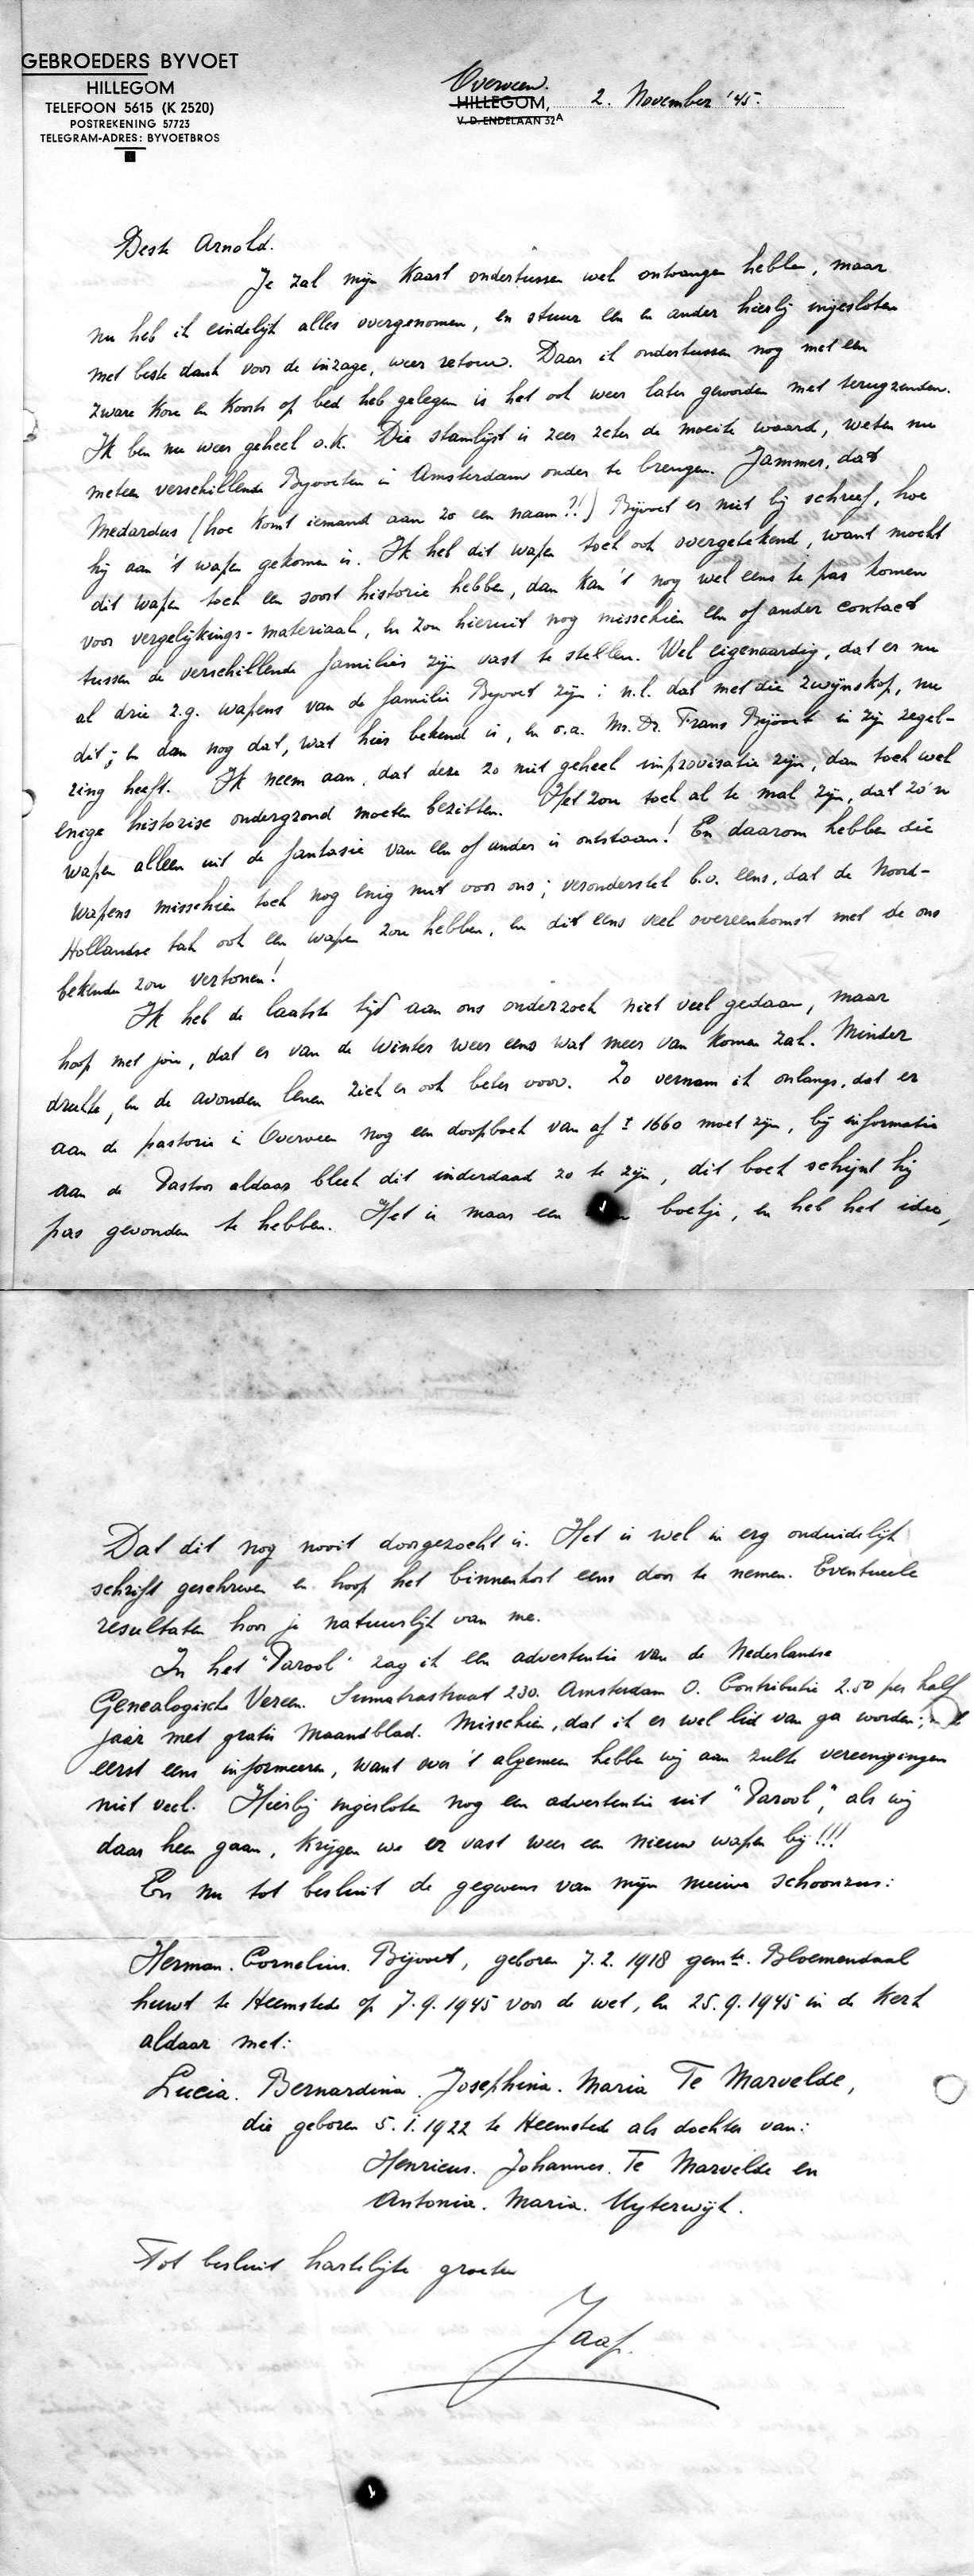 GEBROEDERS BYVOET
HILLEGOM
TELEFOON 5615 (K 2520)
POSTREKENING 57723
TELEGRAM-ADRES: BYVOETBROS
Overveen.
HILLEGOM, 2. November '45.
V. D. ENDELAAN 32A
Beste Arnold.
Je zal mijn kaart ondertussen wel ontvangen hebben, maar
nu heb ik eindelijk alles overgenomen, en stuur een en ander hierbij ingesloten
met beste dank voor de inzage, weer retour. Daar ik ondertussen nog met een
zware kou en koorts op bed heb gelegen is het ook weer later geworden met terugzenden.
Ik ben nu weer geheel o.k. Die stamlijst is zeer zeker de moeite waard, weten nu
meteen verschillende Byvoeten in Amsterdam onder te brengen. Jammer, dat
Medardus (hoe komt iemand aan zo een naam?!) Bijvoet er niet bij schreef, hoe
hij aan 't wapen gekomen is. Ik heb dit wapen toch ook overgetekend, want mocht
dit wapen toch een soort historie hebben, dan kan 't nog wel eens te pas komen
voor vergelijkings-materiaal, en zou hieruit nog misschien een of ander contact
tussen de verschillende families zijn vast te stellen. Wel eigenaardig, dat er nu
al drie z.g. wapens van de familie Byvoet zijn; n.l. dat met die zwijnskop, nu
dit; en dan nog dat, wat hier bekend is, en o.a. Mr. Dr. Frans Bijvoet in zijn zegel-
ring heeft. Ik neem aan, dat deze zo niet geheel improvisatie zijn, dan toch wel
enige historise ondergrond moeten bezitten. Het zou toch al te mal zijn, dat zo'n
wapen alleen uit de fantasie van een of ander is ontstaan! En daarom hebben die
wapens misschien toch nog enig nut voor ons; veronderstel b.v. eens, dat de Noord-
Hollandse tak ook een wapen zou hebben, en dit eens veel overeenkomst met de ons
bekende zou vertonen!
Ik heb de laatste tijd aan ons onderzoek niet veel gedaan, maar
hoop met jou, dat er van de winter weer eens wat meer van komen zal. Minder
drukte, en de avonden lenen zich er ook beter voor. Zo vernam ik onlangs, dat er
aan de pastorie in Overveen nog een doopboek van af ± 1660 moet zijn, bij informatie
aan de Pastoor aldaar bleek dit inderdaad zo te zijn, dit boek schijnt hij
pas gevonden te hebben. Het is maar een boekje, en heb het idee,
Dat dit nog nooit doorgezocht is. Het is wel in erg onduidelijk
schrift geschreven en hoop het binnenkort eens door te nemen. Eventueele
resultaten hoor je natuurlijk van me.
In het "Parool" zag ik een advertentie van de Nederlandse
Genealogische Vereen. Sumatrastraat 230. Amsterdam O. Contributie 2.50 per half
jaar met gratis maandblad. Misschien, dat ik er wel lid van ga worden;
eerst eens informeeren, want over 't algemeen hebben wij aan zulke vereenigingen
niet veel. Hierbij ingesloten nog een advertentie uit "Parool", als wij
daar heen gaan, krijgen we er vast weer een nieuw wapen bij!!!
En nu tot besluit de gegevens van mijn nieuwe schoonzus:
Herman. Cornelius. Bijvoet, geboren 7.2.1918 gemte. Bloemendaal
huwt te Heemstede op 7.9.1945 voor de wet, en 25.9.1945 in de kerk
aldaar met:
Lucia. Bernardina. Josephina. Maria Te Marvelde,
die geboren 5.1.1922 te Heemstede als dochter van:
Henricus. Johannes. Te Marvelde en
Antonia. Maria. Uyterwijk.
Tot besluit hartelijke groeten
Jaap.